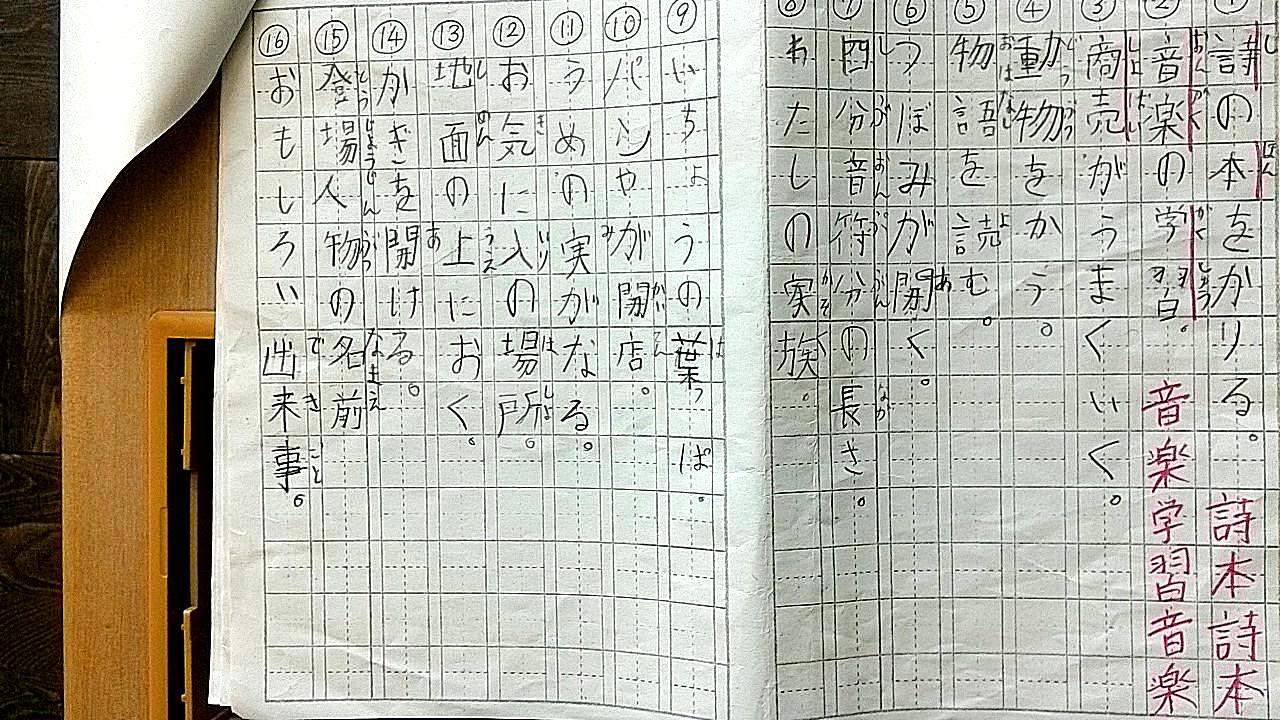 ① 詩の本をかりる。 詩本詩本
② 音楽の学習。 音楽学習音楽
③ 商売がうまくいく。
④ 動物をかう。
⑤ 物語を読む。
⑥ つぼみが開く。
⑦ 四分音符分の長さ。
⑧ わたしの家族。
⑨ いちょうの葉っぱ。
⑩ パンやが開店。
⑪ うめの実がなる。
⑫ お気に入りの場所。
⑬ 地面の上におく。
⑭ かぎを開ける。
⑮ 登場人物の名前
⑯ おもしろい出来事。